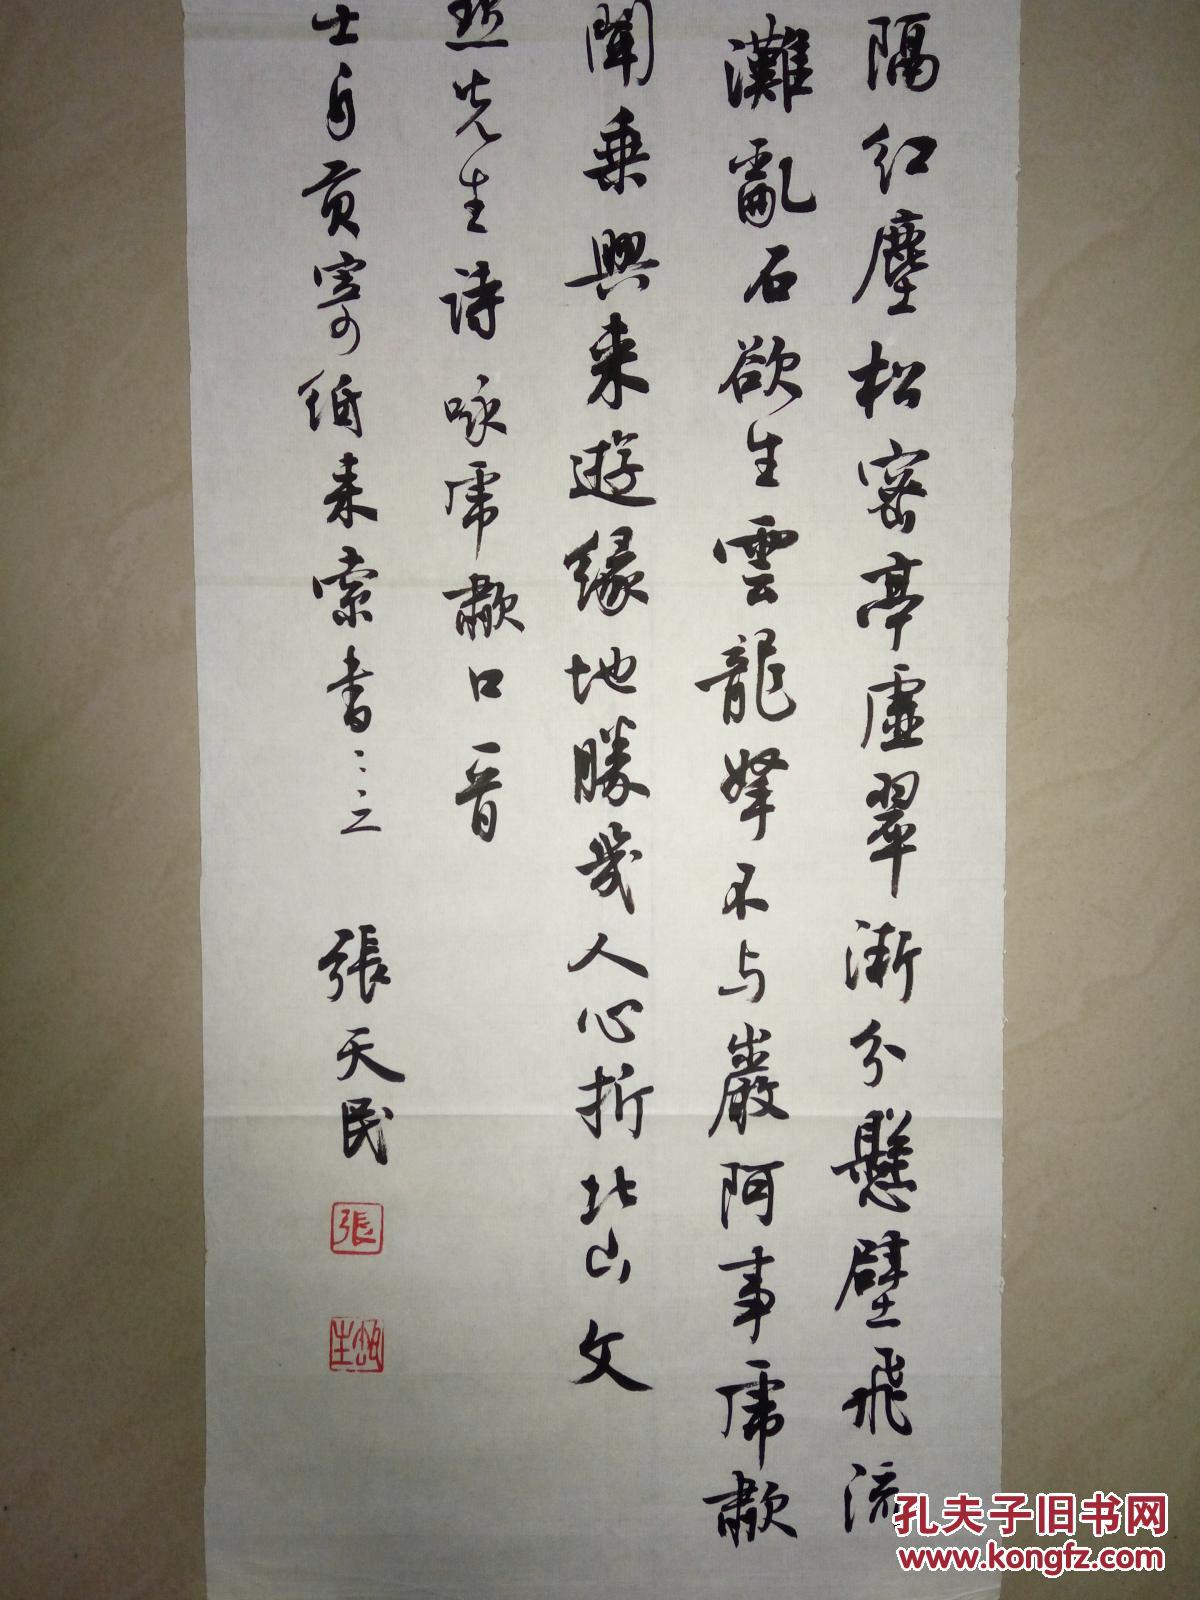 隔红塵松密亭虚翠漸分懸壁飛流
灘亂石欲生雲龍拏不与巖阿事虎歗
聞乗興来遊緣地勝幾人心折北山文
先生詩咏虎歗口一首
士自貢寄紙来索書
張天民
張
孔夫子旧书网
www.kongfz.com